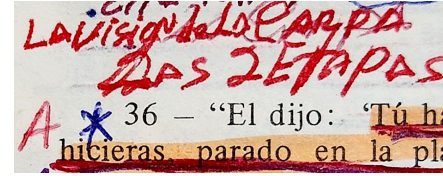 LA VISION de LA CARPA
LAS 2 ETAPAS
A * 36 — “El dijo: ‘Tú ha
hicieras, parado en la pla